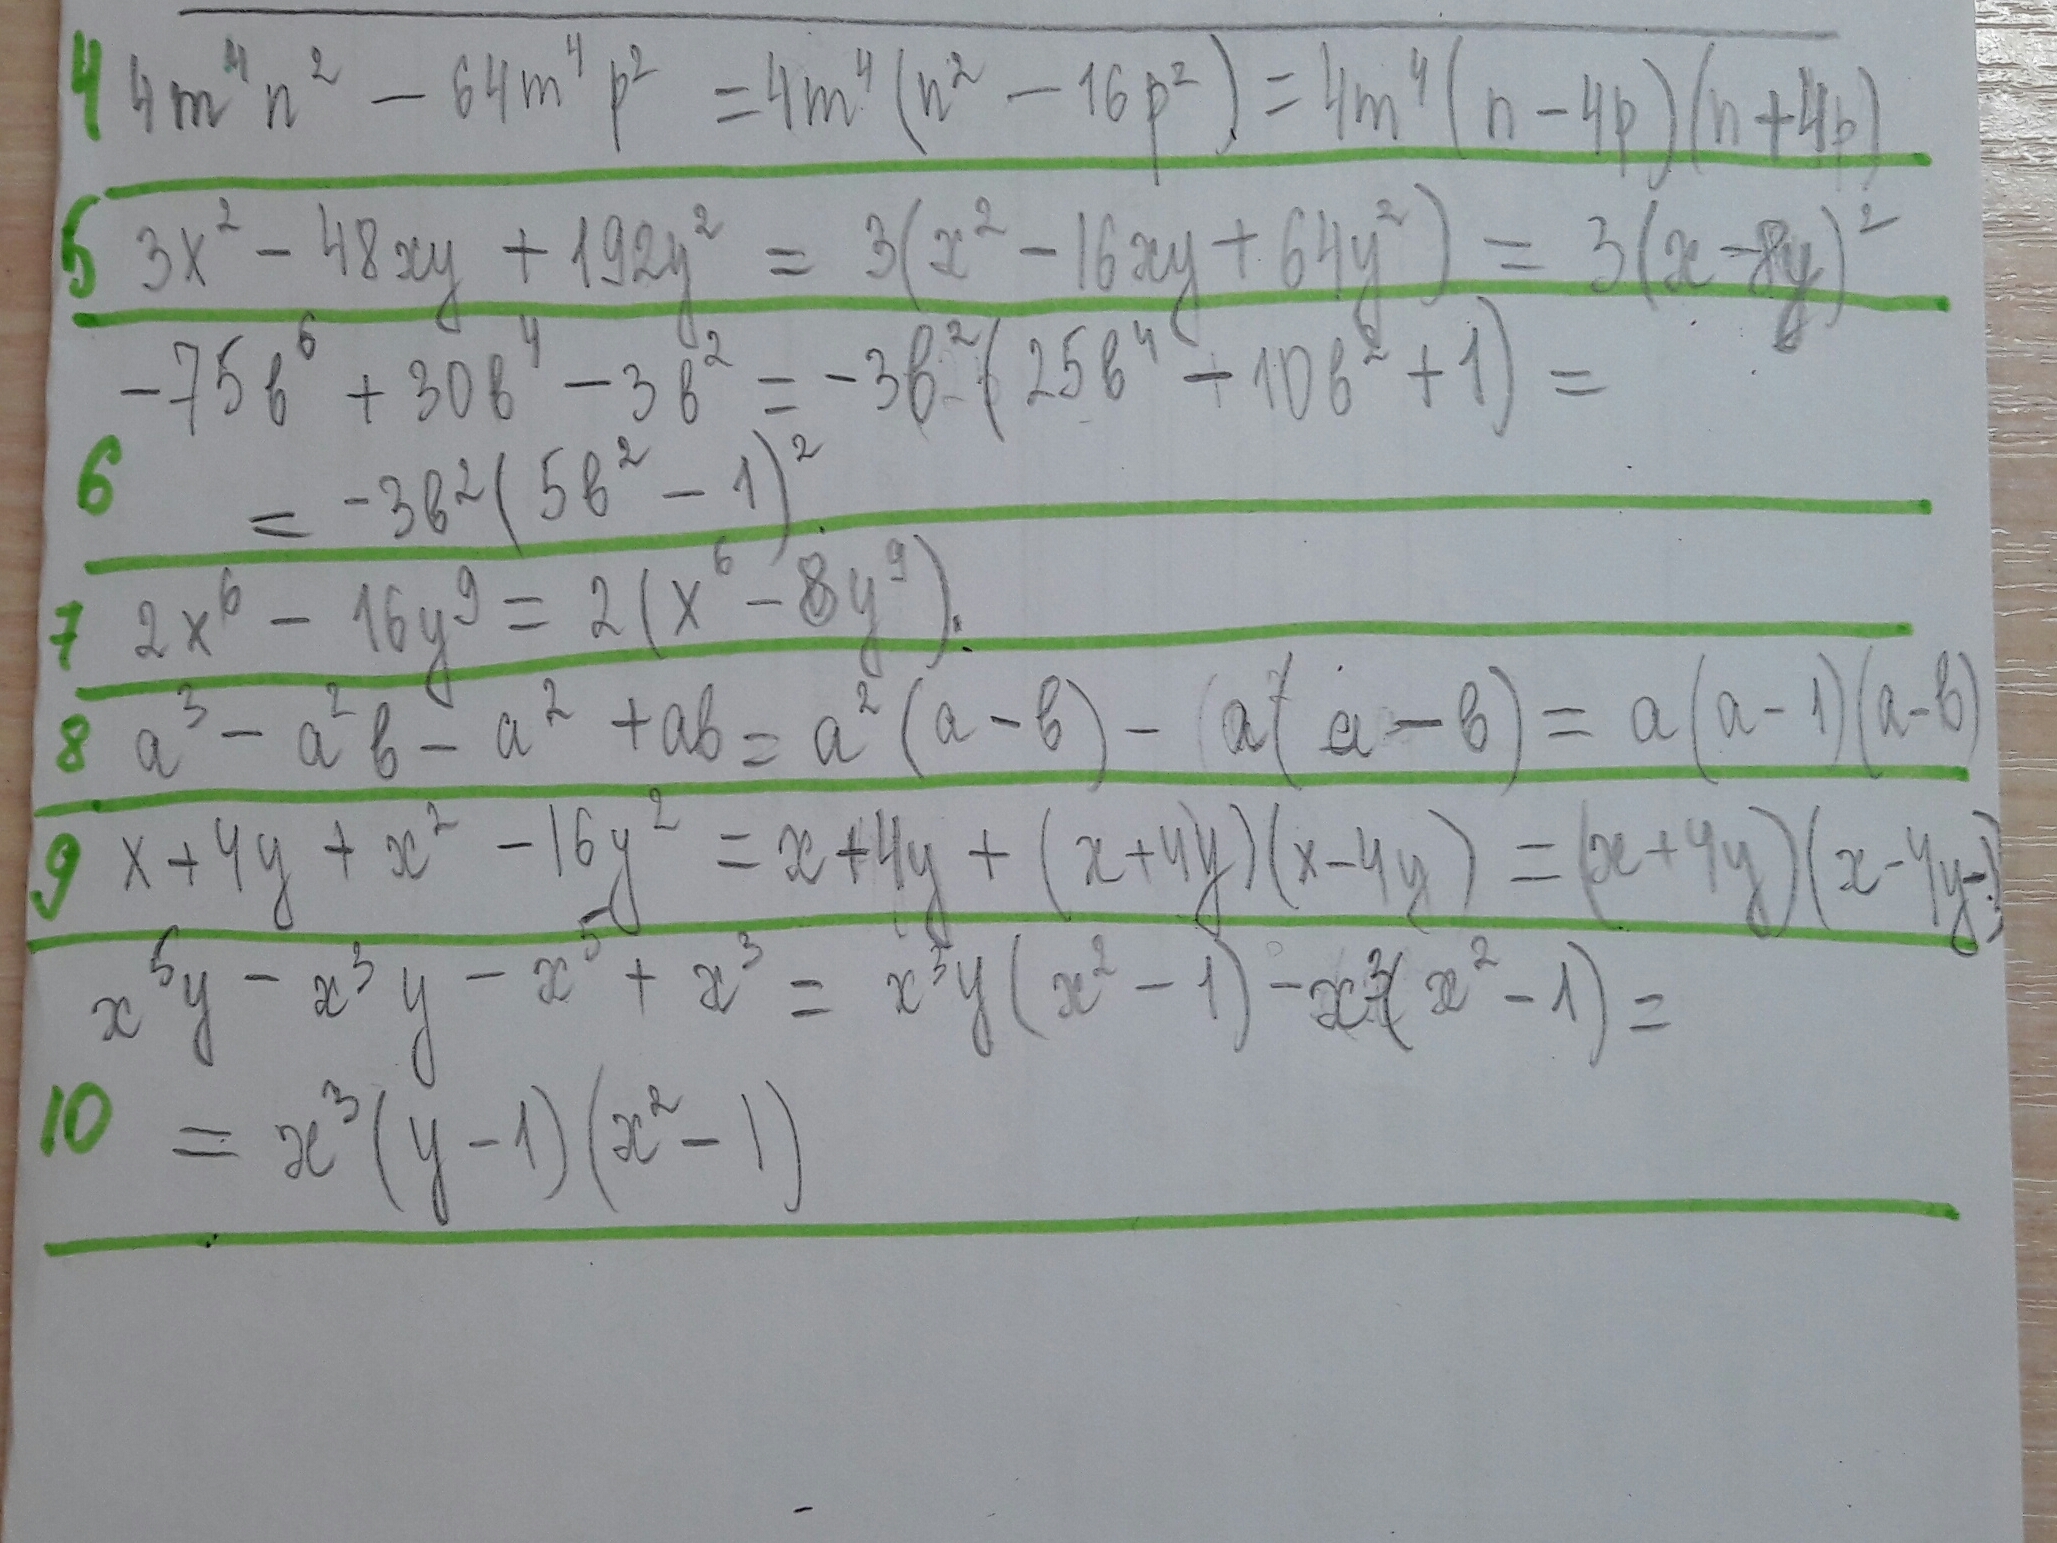 4 4m⁴n² - 64m⁴p² = 4m⁴(n² - 16p²) = 4m⁴(n - 4p)(n + 4p)
5 3x² - 48xy + 192y² = 3(x² - 16xy + 64y²) = 3(x - 8y)²
-75b⁶ + 30b⁴ - 3b² = -3b²(25b⁴ - 10b² + 1) =
6 = -3b²(5b² - 1)².
7 2x⁶ - 16y⁹ = 2(x⁶ - 8y⁹).
8 a³ - a²b - a² + ab = a²(a - b) - a(a - b) = a(a - 1)(a - b)
9 x + 4y + x² - 16y² = x + 4y + (x + 4y)(x - 4y) = (x + 4y)(x - 4y
x⁵y - x³y - x⁵ + x³ = x³y(x² - 1) - x³(x² - 1) =
10 = x³(y - 1)(x² - 1)